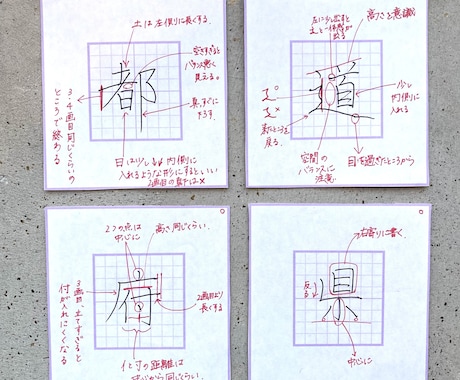 土は左側に長くする。
都
空きすぎると
バランス悪く
見える。
真っすぐに
下ろす
3・4画目同じくらいの
ところで終わる
日は少し内側に
入れるような形にするといい
左に少し出すと
高さを意識
道
少し
内側に
入れる
来たところを
戻る。
空間の
バランスに
注意
目を過ぎたところから
2つの点は
中心に
高さ同じくらい。
府
3画目、立てすぎると
付がきれいにくくなる
2画目より
長くする
イと寸の距離は
中心から同じくらい。
右寄りに書く。
県
反る
中心に